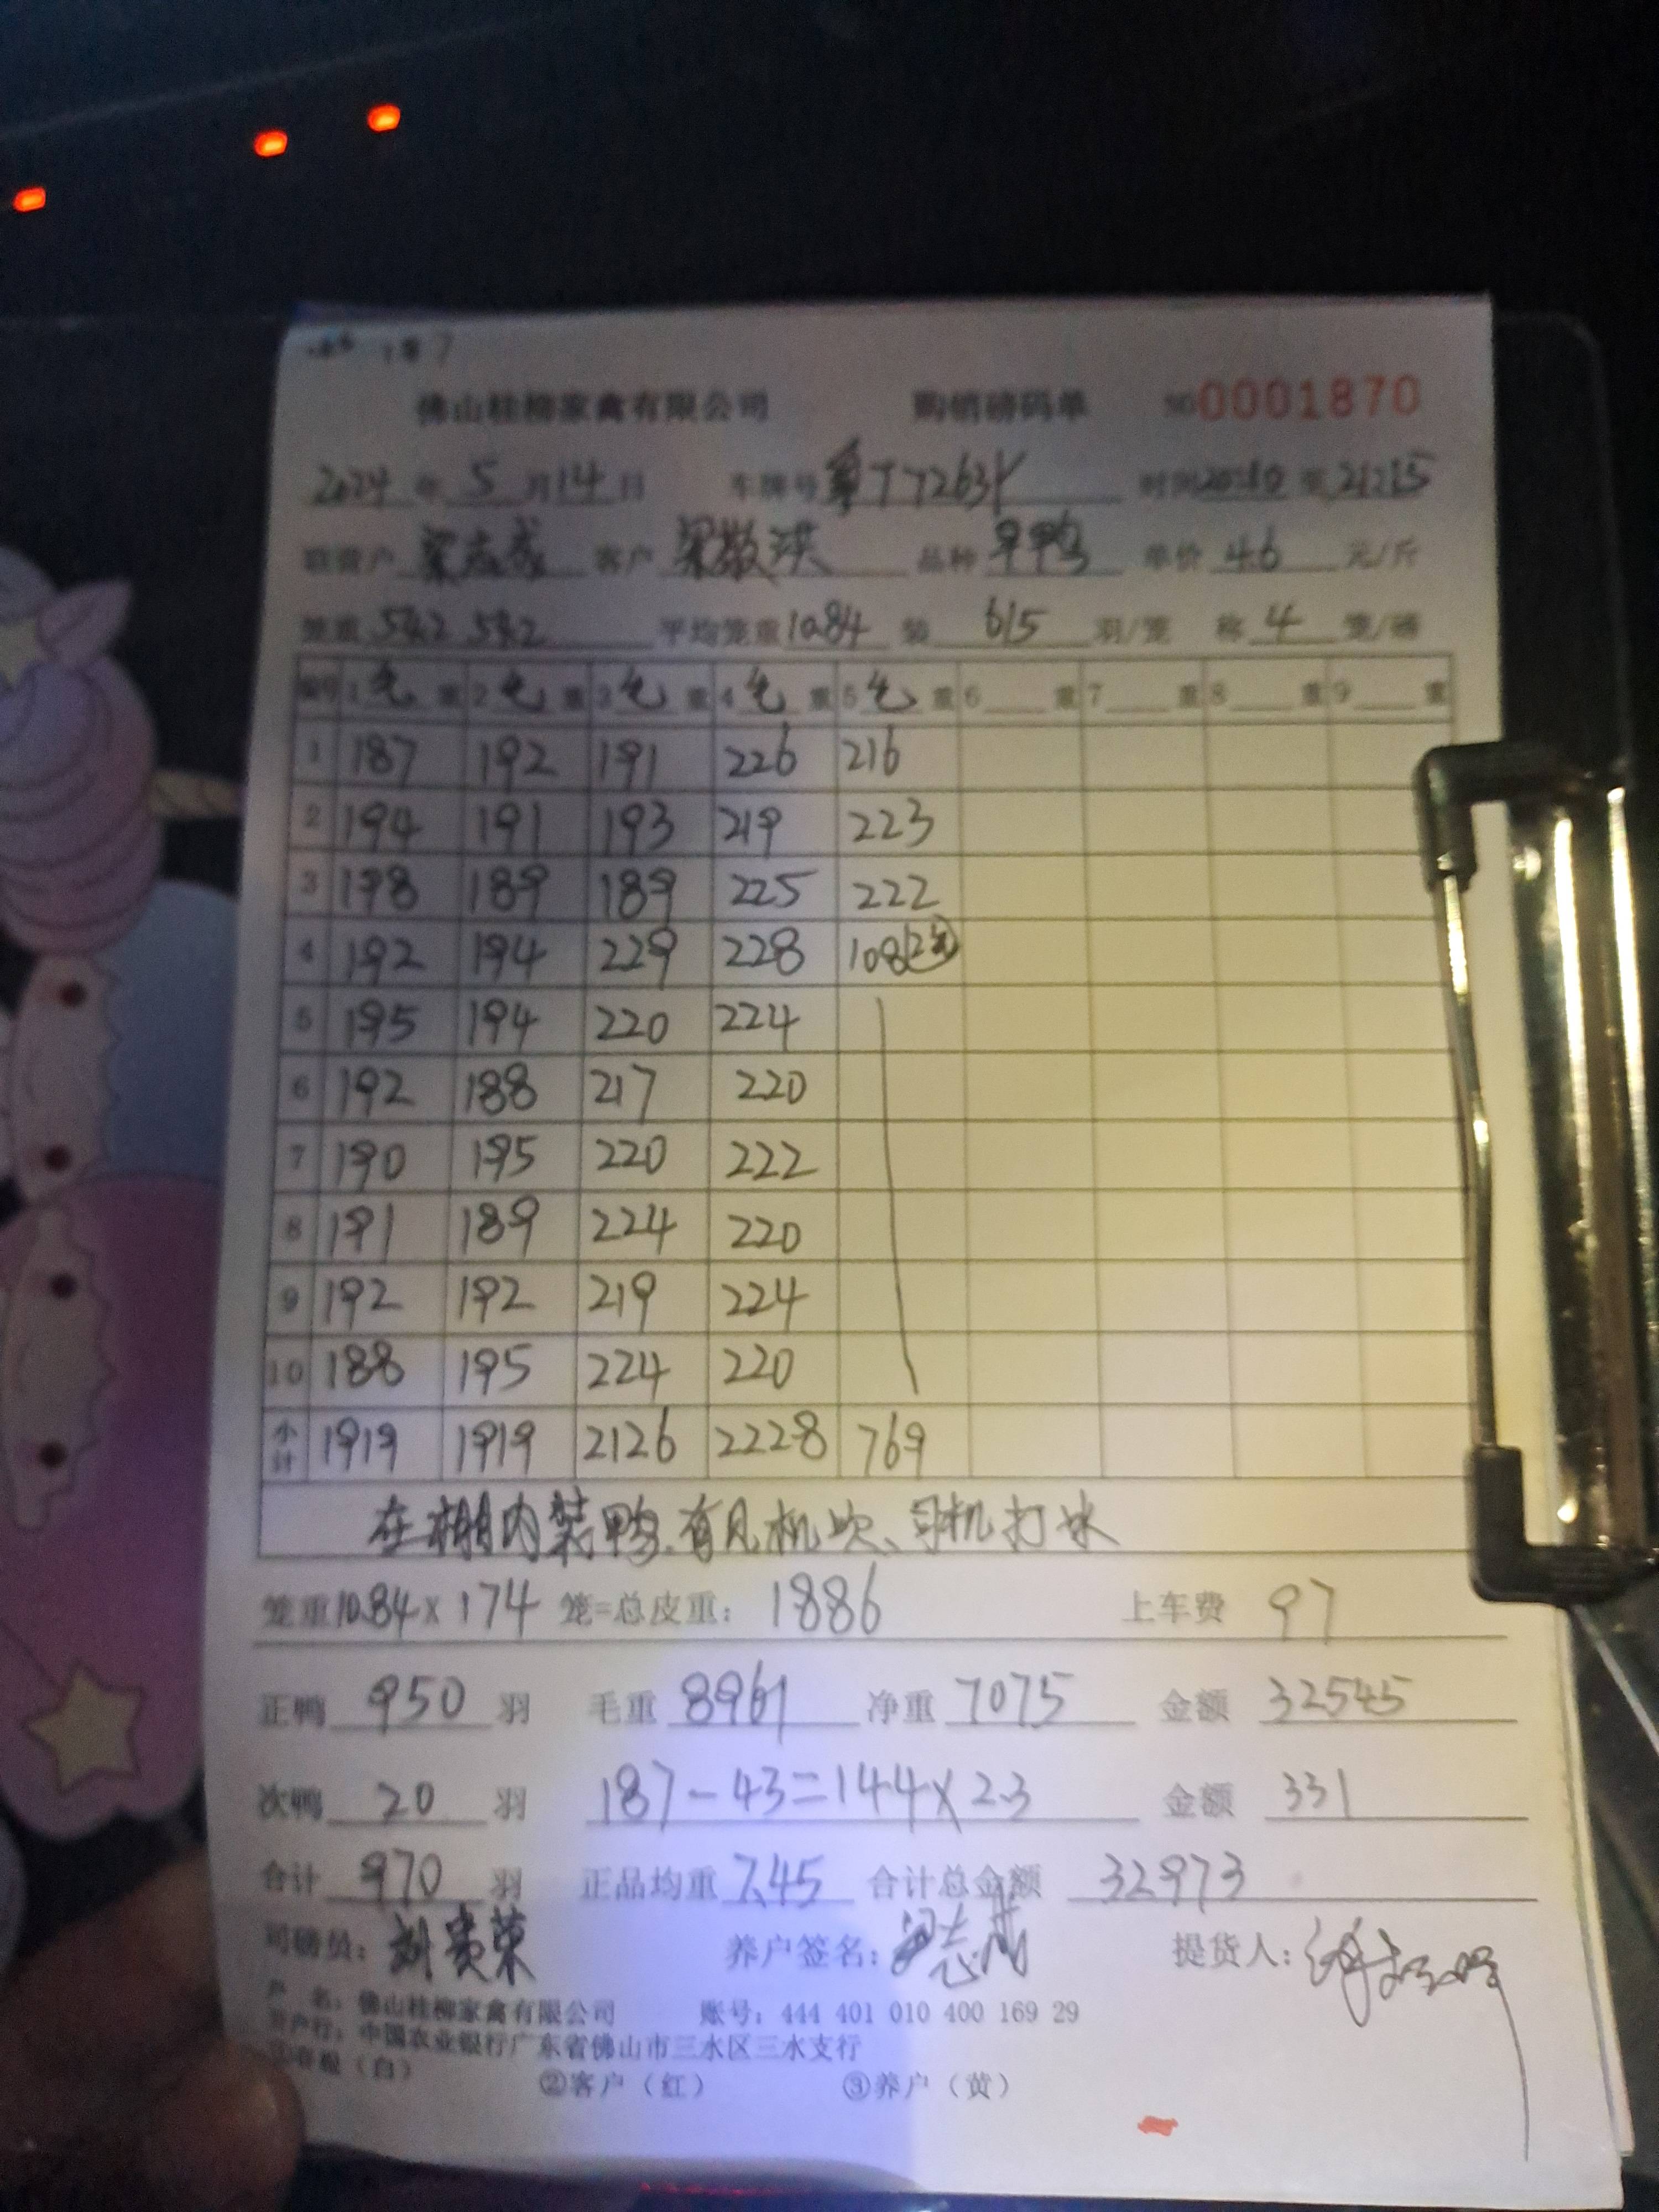 佛山桂柳家禽有限公司 购销磅码单 NO 0001870
2024 年 5 月 14 日 车牌号 时间 20:10 至 21:15
客户 梁敬洪 品种 单价 4.6 元/斤
笼重 54.2 54.2 平均笼重 10.84 装 6/5 羽/笼 称 4 笼/磅
编号 1 毛 重 2 毛 重 3 毛 重 4 毛 重 5 毛 重 6 重 7 重 8 重 9 重
1 187 192 191 226 216
2 194 191 193 219 223
3 198 189 189 225 222
4 192 194 229 228 108
5 195 194 220 224
6 192 188 217 220
7 190 195 220 222
8 191 189 224 220
9 192 192 219 224
10 188 195 224 220
小计 1919 1919 2126 2228 769
在棚内装鸭.有风机吹、司机打水
笼重 10.84 x 174 笼=总皮重: 1886 上车费 97
正鸭 950 羽 毛重 8961 净重 7075 金额 32545
次鸭 20 羽 187-43=144x2.3 金额 331
合计 970 羽 正品均重 7.45 合计总金额 32973
司磅员: 养户签名: 提货人:
户 名: 佛山桂柳家禽有限公司 账号: 444 401 010 400 169 29
开户行: 中国农业银行广东省佛山市三水区三水支行
(白) ②客户(红) ③养户(黄)